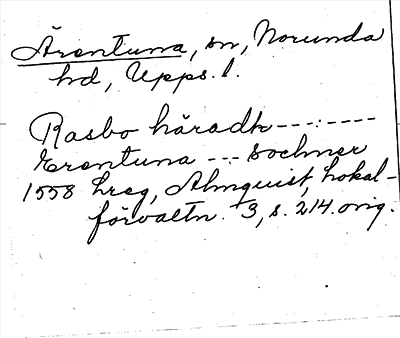 Ärentuna, sn, Norunda
hd, Upps. l.
Rasbo häradh - - - - - - - -
Erentuna - - - sochner
1558 Lreg, Almquist, Lokal-
förvaltn. 3, s. 214. orig.